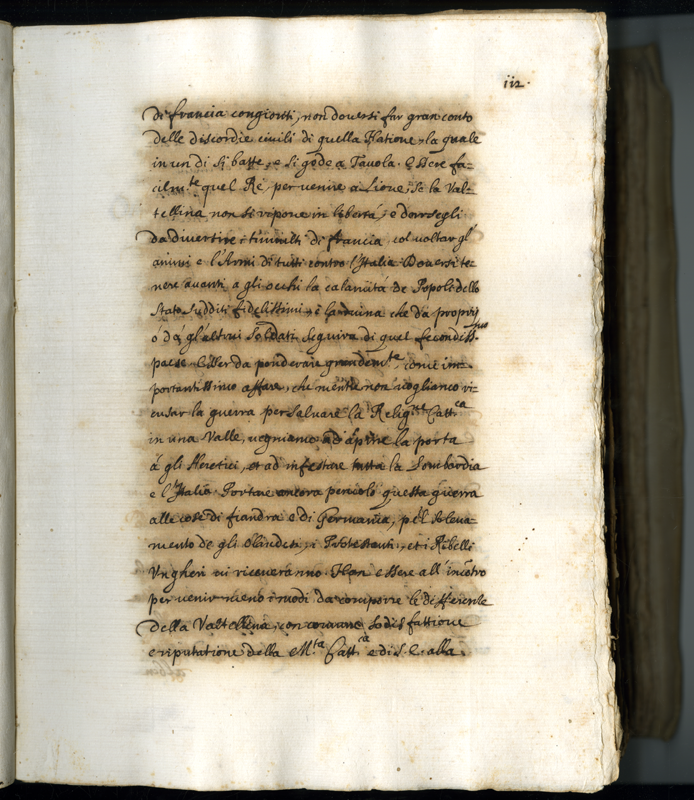 112.
di francia congionti, non doversi far gran conto
delle discordie civili di quella Natione, la quale
in un di si batte, e si gode a Tavola. Essere fa=
cilm.te quel Rè, per venire a Lione, se la Val=
tellina non si ripone in libertà, e
da divertire i tumulti di francia col voltar gl'
animi e l'Armi di tutti contro l'Italia. Doversi te=
nere avanti a gli occhi la calamità de Popoli dello
Stato sudditi fidelissimi, e la ruina che da proprij
ò dà gl'altrui soldati seguirà di quel fecondiss.mo
paese. Esser da ponderare grandem.te, come im=
portantissimo affare, che mentre non vogliamo ri=
cusar la guerra per salvare la Relig.ne Catt.ca
in una Valle, vegniamo ad aprire la porta
à gli Heretici, et ad infestare tutta la Lombardia
e l'Italia. Portare ancora pericolo questa guerra
alle cose di fiandra e di Germania, pel solleva=
mento de gli Olandesi, i Protestanti, et i Ribelli
Ungheri ne riceveranno. Han essere all'incōtro
per venir meno i modi da comporre le differenze
della Valtellina, con comune sodisfattione
e riputatione della M.tà Catt.ca e di S. E. alla